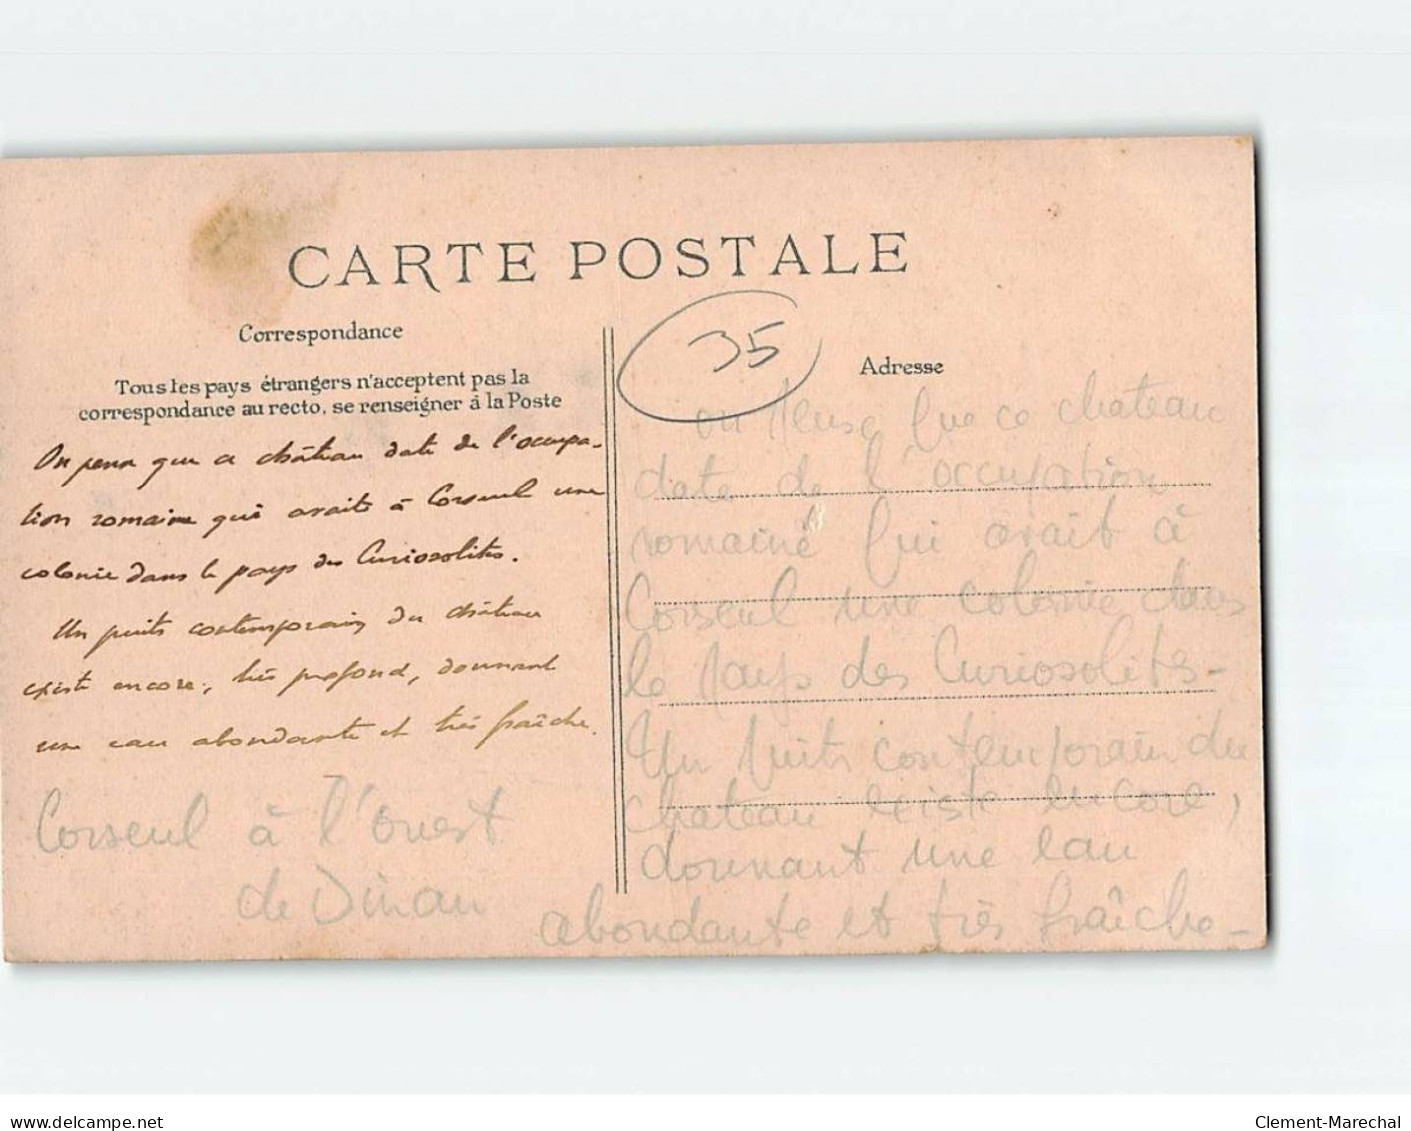 CARTE POSTALE
Correspondance
Tous les pays étrangers n'acceptent pas la
correspondance au recto, se renseigner à la Poste
On pense que ce château date de l'occupa-
tion romaine qui avait à Corseul une
colonie dans le pays des Curiosolites.
Un puits contemporain du château
existe encore, très profond, donnant
une eau abondante et très fraîche.
Corseul à l'ouest
de Dinan
35
Adresse
on pense que ce chateau
date de l'occupation
romaine qui avait à
Corseul une colonie dans
le pays des Curiosolites-
Un puits contemporain du
chateau existe encore,
donnant une eau
abondante et très fraîche-
www.delcampe.net
Clement-Marechal